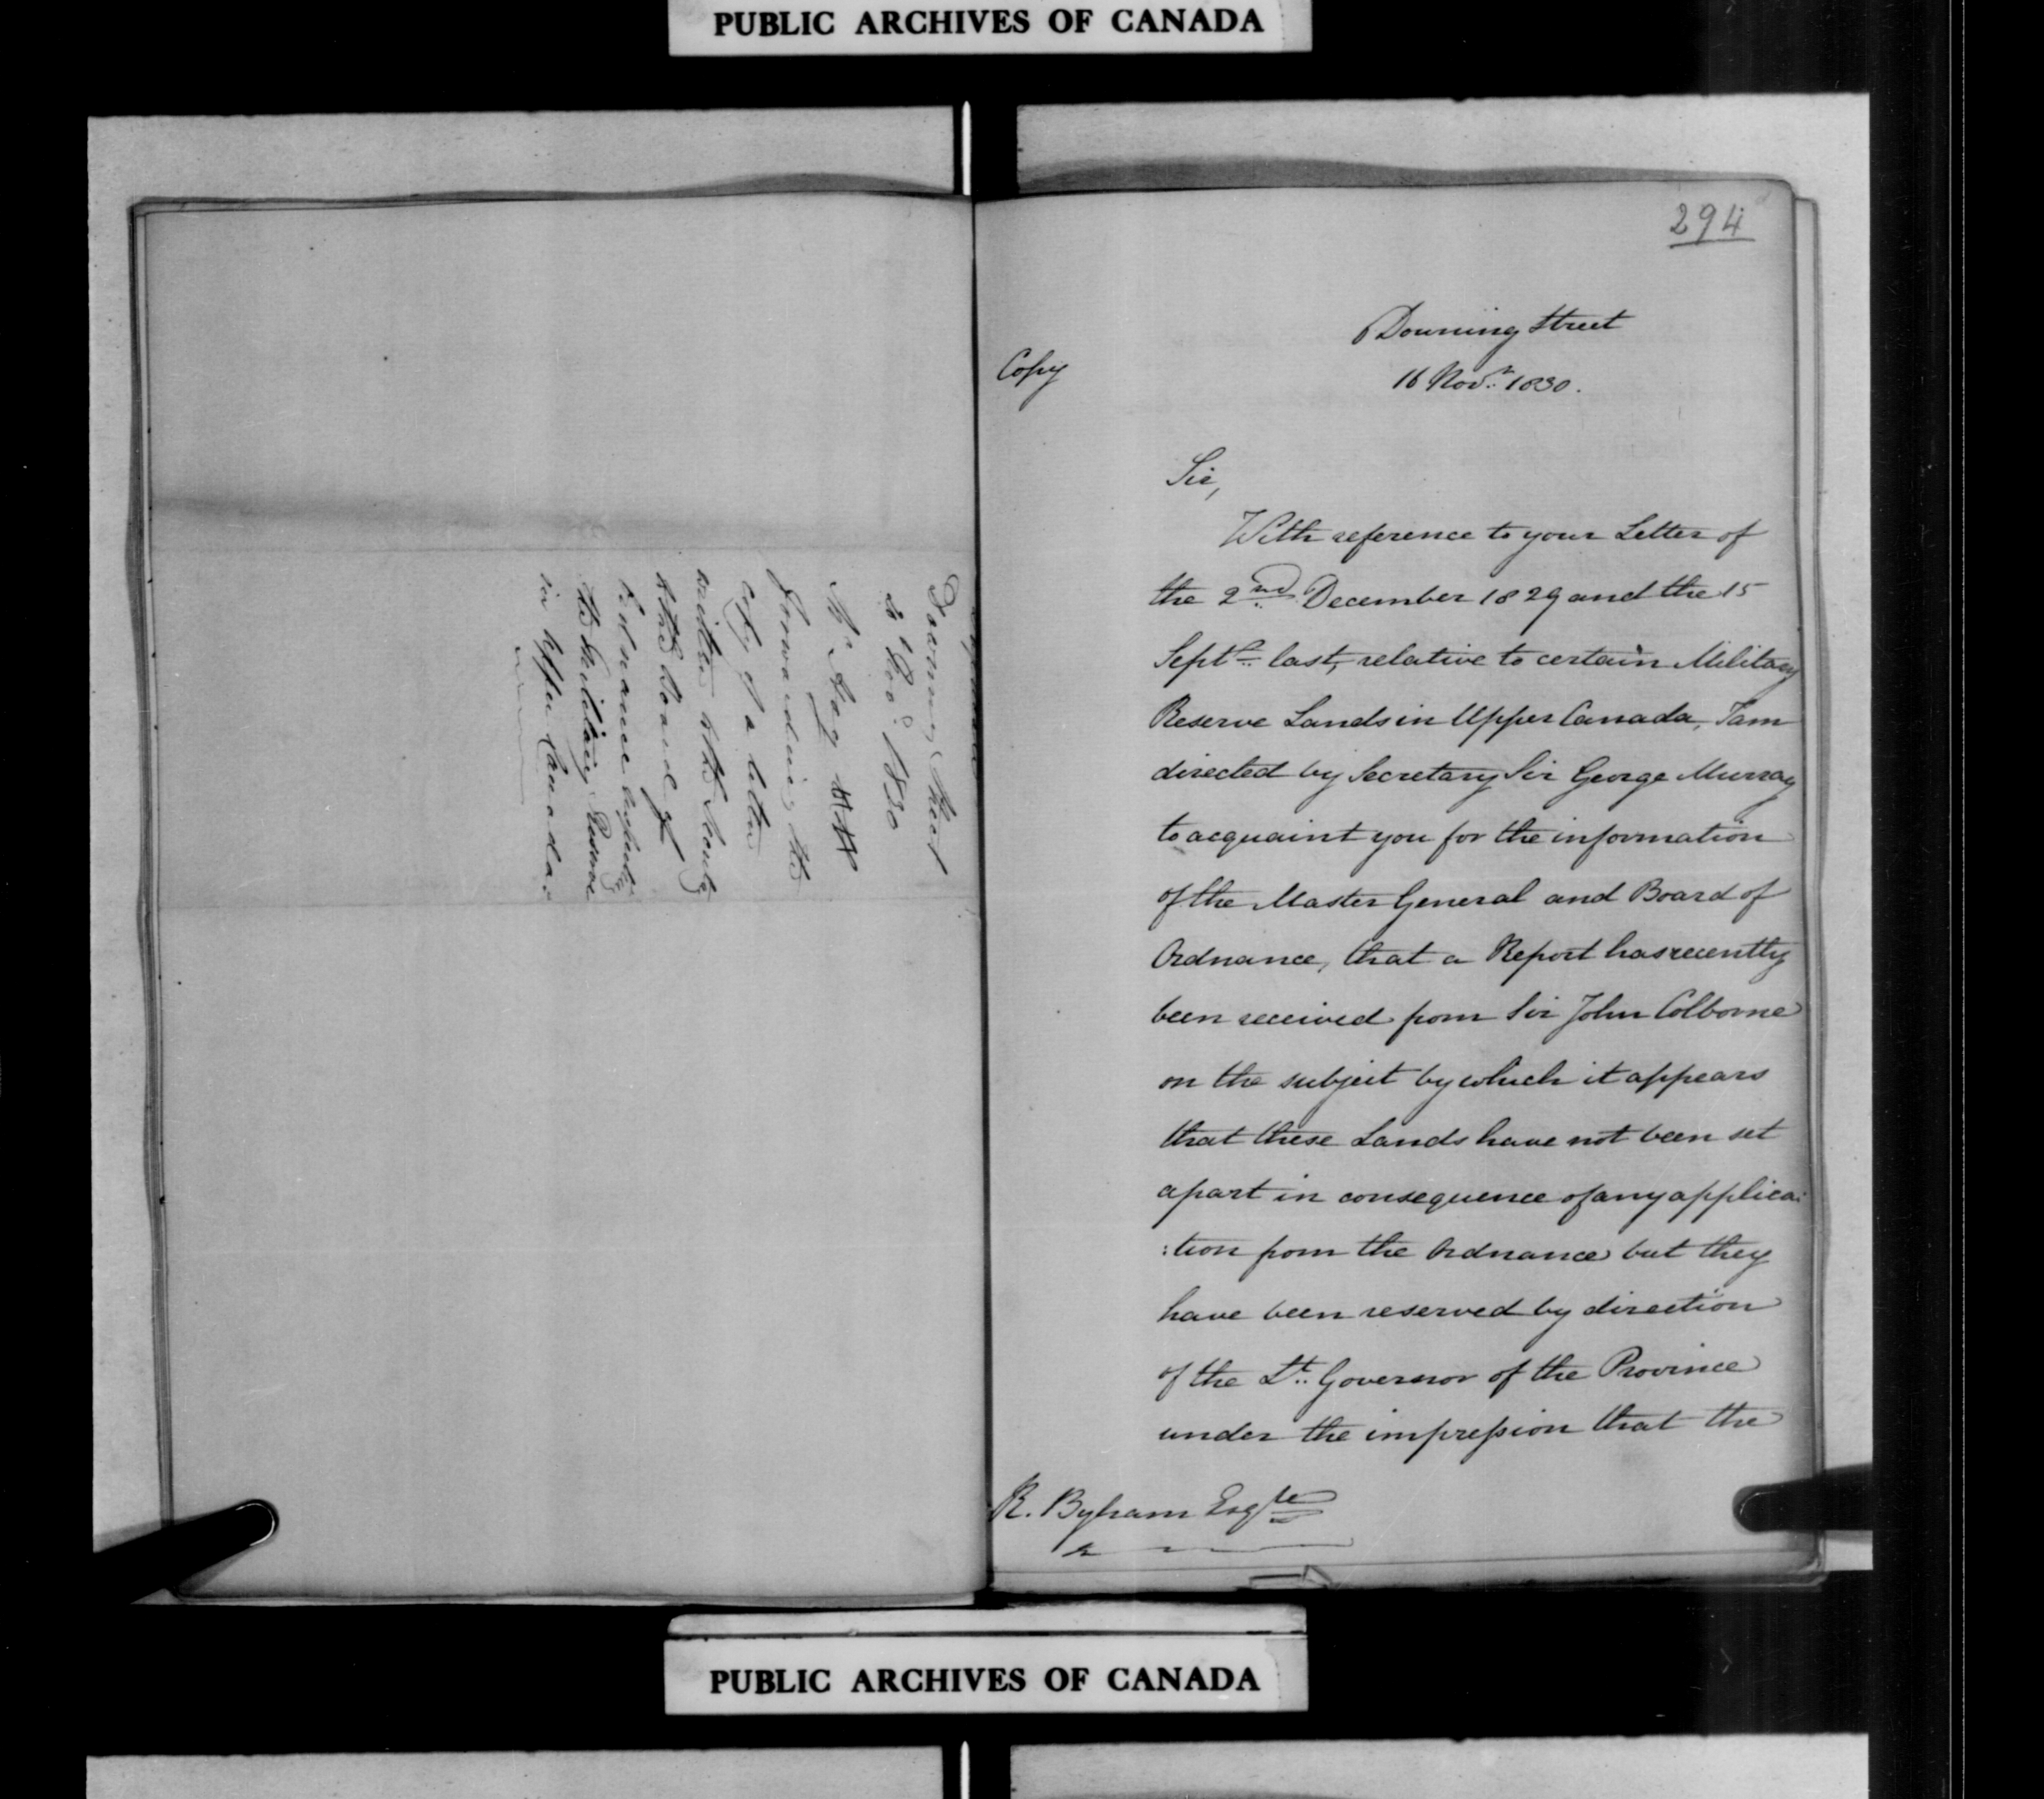 PUBLIC ARCHIVES OF CANADA
Downing Street
Nov. 1830
Mr Hay
forwarding the
copy of a letter
written to the Secretary
to the Board of
Ordnance
to Military Reserves
in Upper Canada.
294
Copy
Downing Street
16 Novr. 1830.
Sir,
With reference to your Letter of
the 2nd December 1829 and the 15
Septr. last, relative to certain Military
Reserve Lands in Upper Canada, I am
directed by Secretary Sir George Murray
to acquaint you for the information
of the Master General and Board of
Ordnance, that a Report has recently
been received from Sir John Colborne
on the subject by which it appears
that these Lands have not been set
apart in consequence of any applica:
:tion from the Ordnance but they
have been reserved by direction
of the Lt. Governor of the Province
under the impression that the
R. Byham Esqre
PUBLIC ARCHIVES OF CANADA